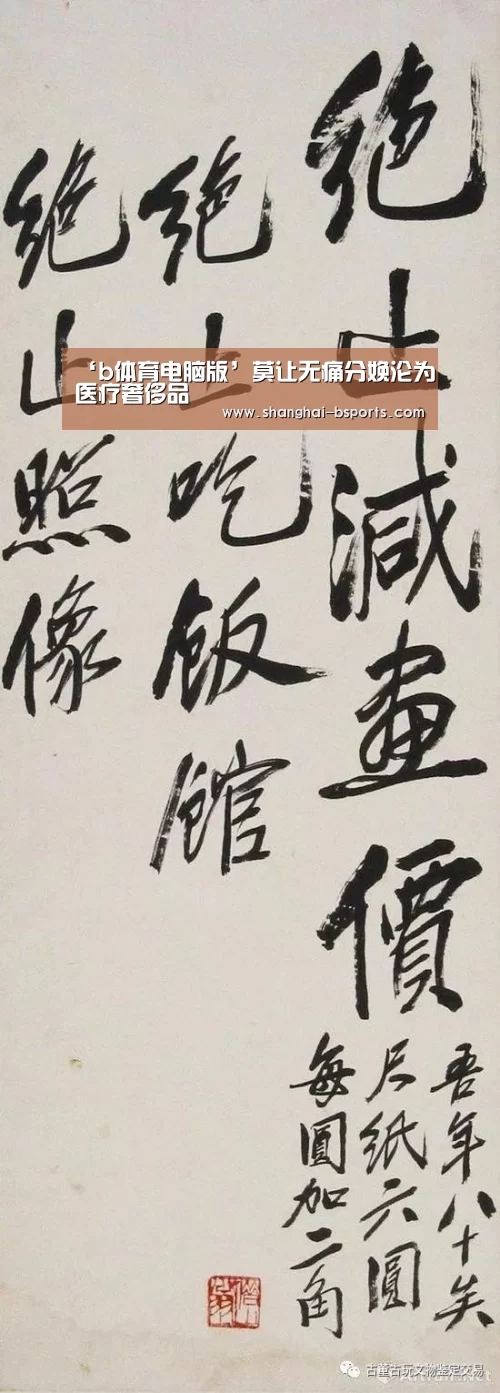 绝止減畫價
吾年八十矣
尺紙六圓
每圓加二角
绝止吃飯館
绝止照像
‘b体育电脑版’莫让无痛分娩沦为
医疗奢侈品
www.shanghai-bsports.com
古董古玩文物鉴定交易